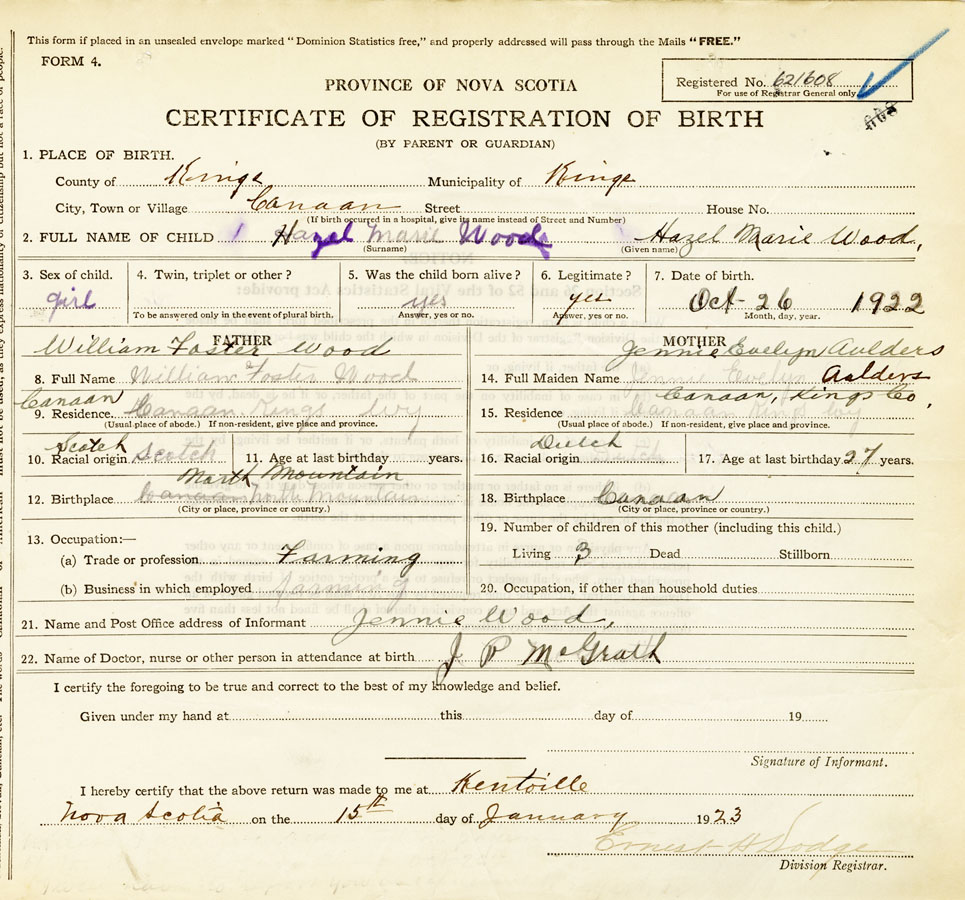 This form if placed in an unsealed envelope marked "Dominion Statistics free," and properly addressed will pass through the Mails "FREE."
FORM 4.
PROVINCE OF NOVA SCOTIA
Registered No. 621608
For use of Registrar General only.
CERTIFICATE OF REGISTRATION OF BIRTH
(BY PARENT OR GUARDIAN)
1. PLACE OF BIRTH.
County of Kings Municipality of Kings
City, Town or Village Canaan Street House No.
(If birth occurred in a hospital, give its name instead of Street and Number)
2. FULL NAME OF CHILD Hazel Marie Woods Hazel Marie Wood,
(Surname) (Given name)
3. Sex of child. 4. Twin, triplet or other? 5. Was the child born alive? 6. Legitimate? 7. Date of birth.
girl yes yes Oct - 26 1922
To be answered only in the event of plural birth. Answer, yes or no. Answer, yes or no. Month, day, year.
FATHER MOTHER
William Foster Wood Jennie Evelyn Aulders
8. Full Name William Foster Wood 14. Full Maiden Name Jennie Evelyn Aulders
Canaan Canaan, Kings Co.
9. Residence. Canaan Kings 15. Residence Canaan Kings
(Usual place of abode.) If non-resident, give place and province. (Usual place of abode.) If non-resident, give place and province.
Scotch Dutch
10. Racial origin Scotch 11. Age at last birthday years. 16. Racial origin Dutch 17. Age at last birthday 27 years.
North Mountain
12. Birthplace Canaan North Mountain 18. Birthplace Canaan
(City or place, province or country.) (City or place, province or country.)
13. Occupation:— 19. Number of children of this mother (including this child.)
(a) Trade or profession Farming Living 3 Dead Stillborn
(b) Business in which employed Farming 20. Occupation, if other than household duties
21. Name and Post Office address of Informant Jennie Wood,
22. Name of Doctor, nurse or other person in attendance at birth J P McGrath
I certify the foregoing to be true and correct to the best of my knowledge and belief.
Given under my hand at this day of 19
Signature of Informant.
I hereby certify that the above return was made to me at Kentville
Nova Scotia on the 15th day of January 1923
Ernest H Dodge
Division Registrar.